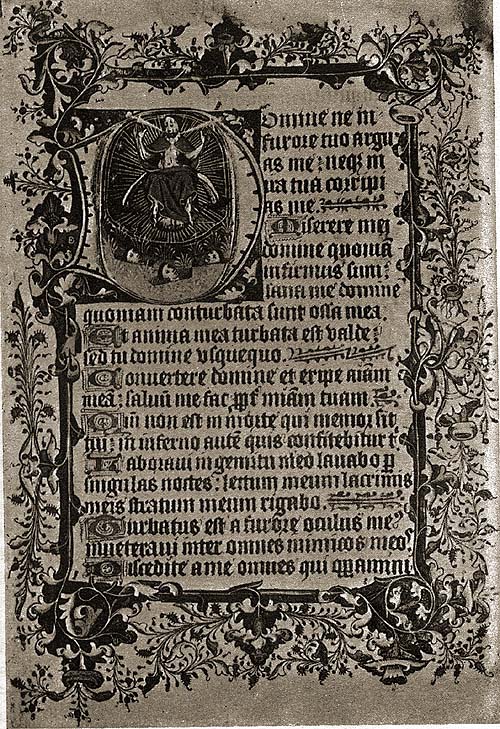 Domine ne in
furore tuo argu
as me : neqz in
ira tua corripi
as me.
Miserere mei
domine quoniā
infirmus sum :
sana me domine
quoniam conturbata sunt ossa mea :
Et anima mea turbata est valde :
sed tu domine usquequo.
Convertere domine et eripe aīam
meā : salvū me fac ꝓpt̄ miām tuam
Qm̄ non est in morte qui memor sit
tui : in inferno autē quis confitebitur t
Laboravi in gemitu meo lavabo p̄
singulas noctes : lectum meum lacrimis
meis stratum meum rigabo.
Turbatus est a furore oculus meꝰ
inveteravi inter omnes inimicos meos
Discedite a me omnes qui opamini